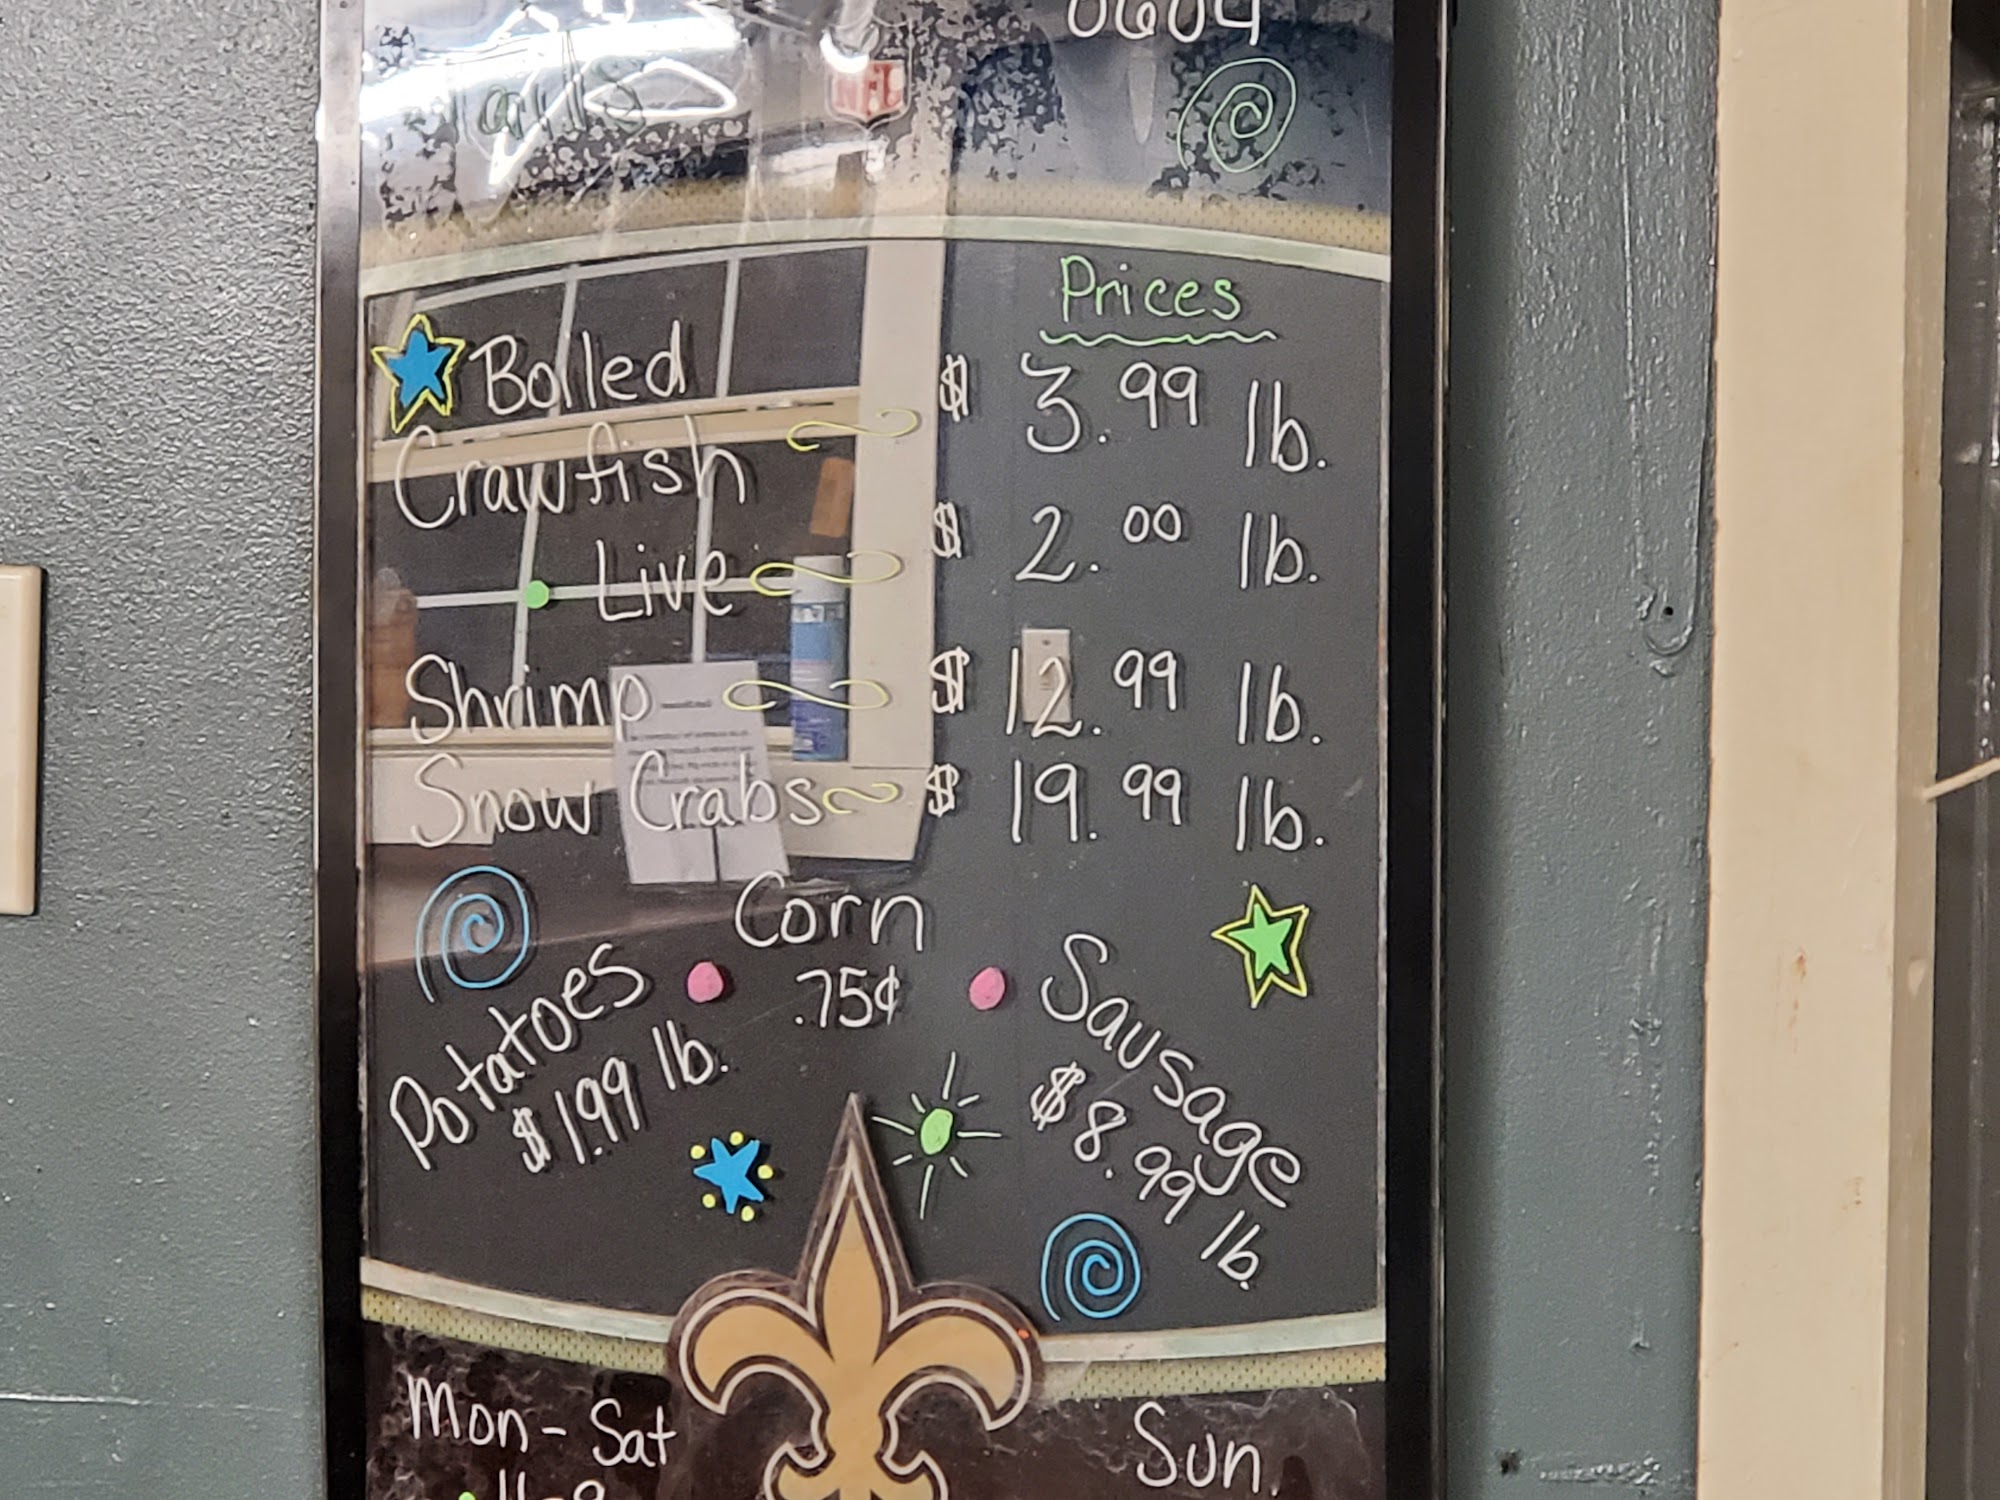 0604
NFL
Prices
Boiled
Crawfish $ 3.99 lb.
Live $ 2.00 lb.
Shrimp $ 12.99 lb.
Snow Crabs $ 19.99 lb.
Corn
.75¢
Potatoes
$1.99 lb.
Sausage
$8.99 lb.
Mon-Sat
Sun.